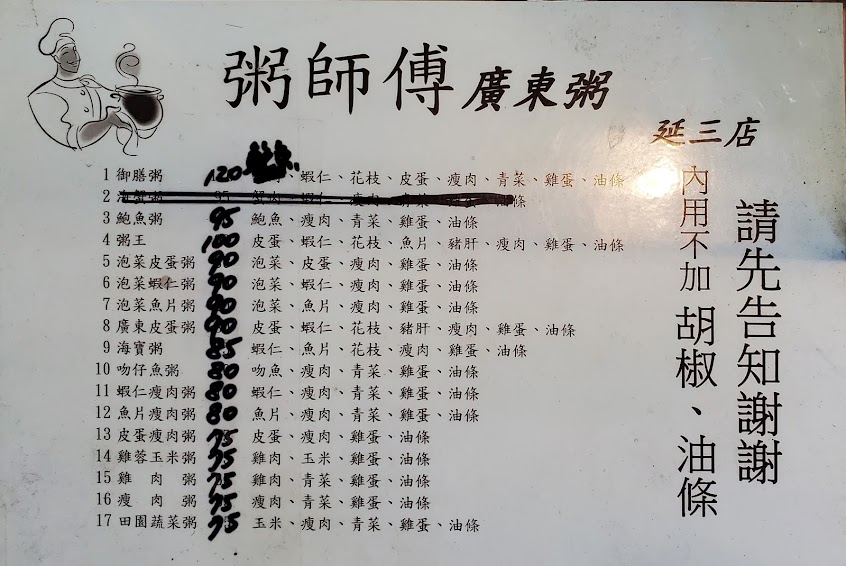 粥師傅廣東粥
延三店
1 御膳粥 120 鮑魚、蝦仁、花枝、皮蛋、瘦肉、青菜、雞蛋、油條
2 海蟹粥 95 蟹肉、蝦仁、瘦肉、青菜、雞蛋、油條
3 鮑魚粥 95 鮑魚、瘦肉、青菜、雞蛋、油條
4 粥王 100 皮蛋、蝦仁、花枝、魚片、豬肝、瘦肉、雞蛋、油條
5 泡菜皮蛋粥 90 泡菜、皮蛋、瘦肉、雞蛋、油條
6 泡菜蝦仁粥 90 泡菜、蝦仁、瘦肉、雞蛋、油條
7 泡菜魚片粥 90 泡菜、魚片、瘦肉、雞蛋、油條
8 廣東皮蛋粥 90 皮蛋、蝦仁、花枝、豬肝、瘦肉、雞蛋、油條
9 海寶粥 85 蝦仁、魚片、花枝、瘦肉、雞蛋、油條
10 吻仔魚粥 80 吻魚、瘦肉、青菜、雞蛋、油條
11 蝦仁瘦肉粥 80 蝦仁、瘦肉、青菜、雞蛋、油條
12 魚片瘦肉粥 80 魚片、瘦肉、青菜、雞蛋、油條
13 皮蛋瘦肉粥 75 皮蛋、瘦肉、雞蛋、油條
14 雞蓉玉米粥 75 雞肉、玉米、雞蛋、油條
15 雞肉粥 75 雞肉、青菜、雞蛋、油條
16 瘦肉粥 75 瘦肉、青菜、雞蛋、油條
17 田園蔬菜粥 75 玉米、瘦肉、青菜、雞蛋、油條
請先告知謝謝
內用不加胡椒、油條